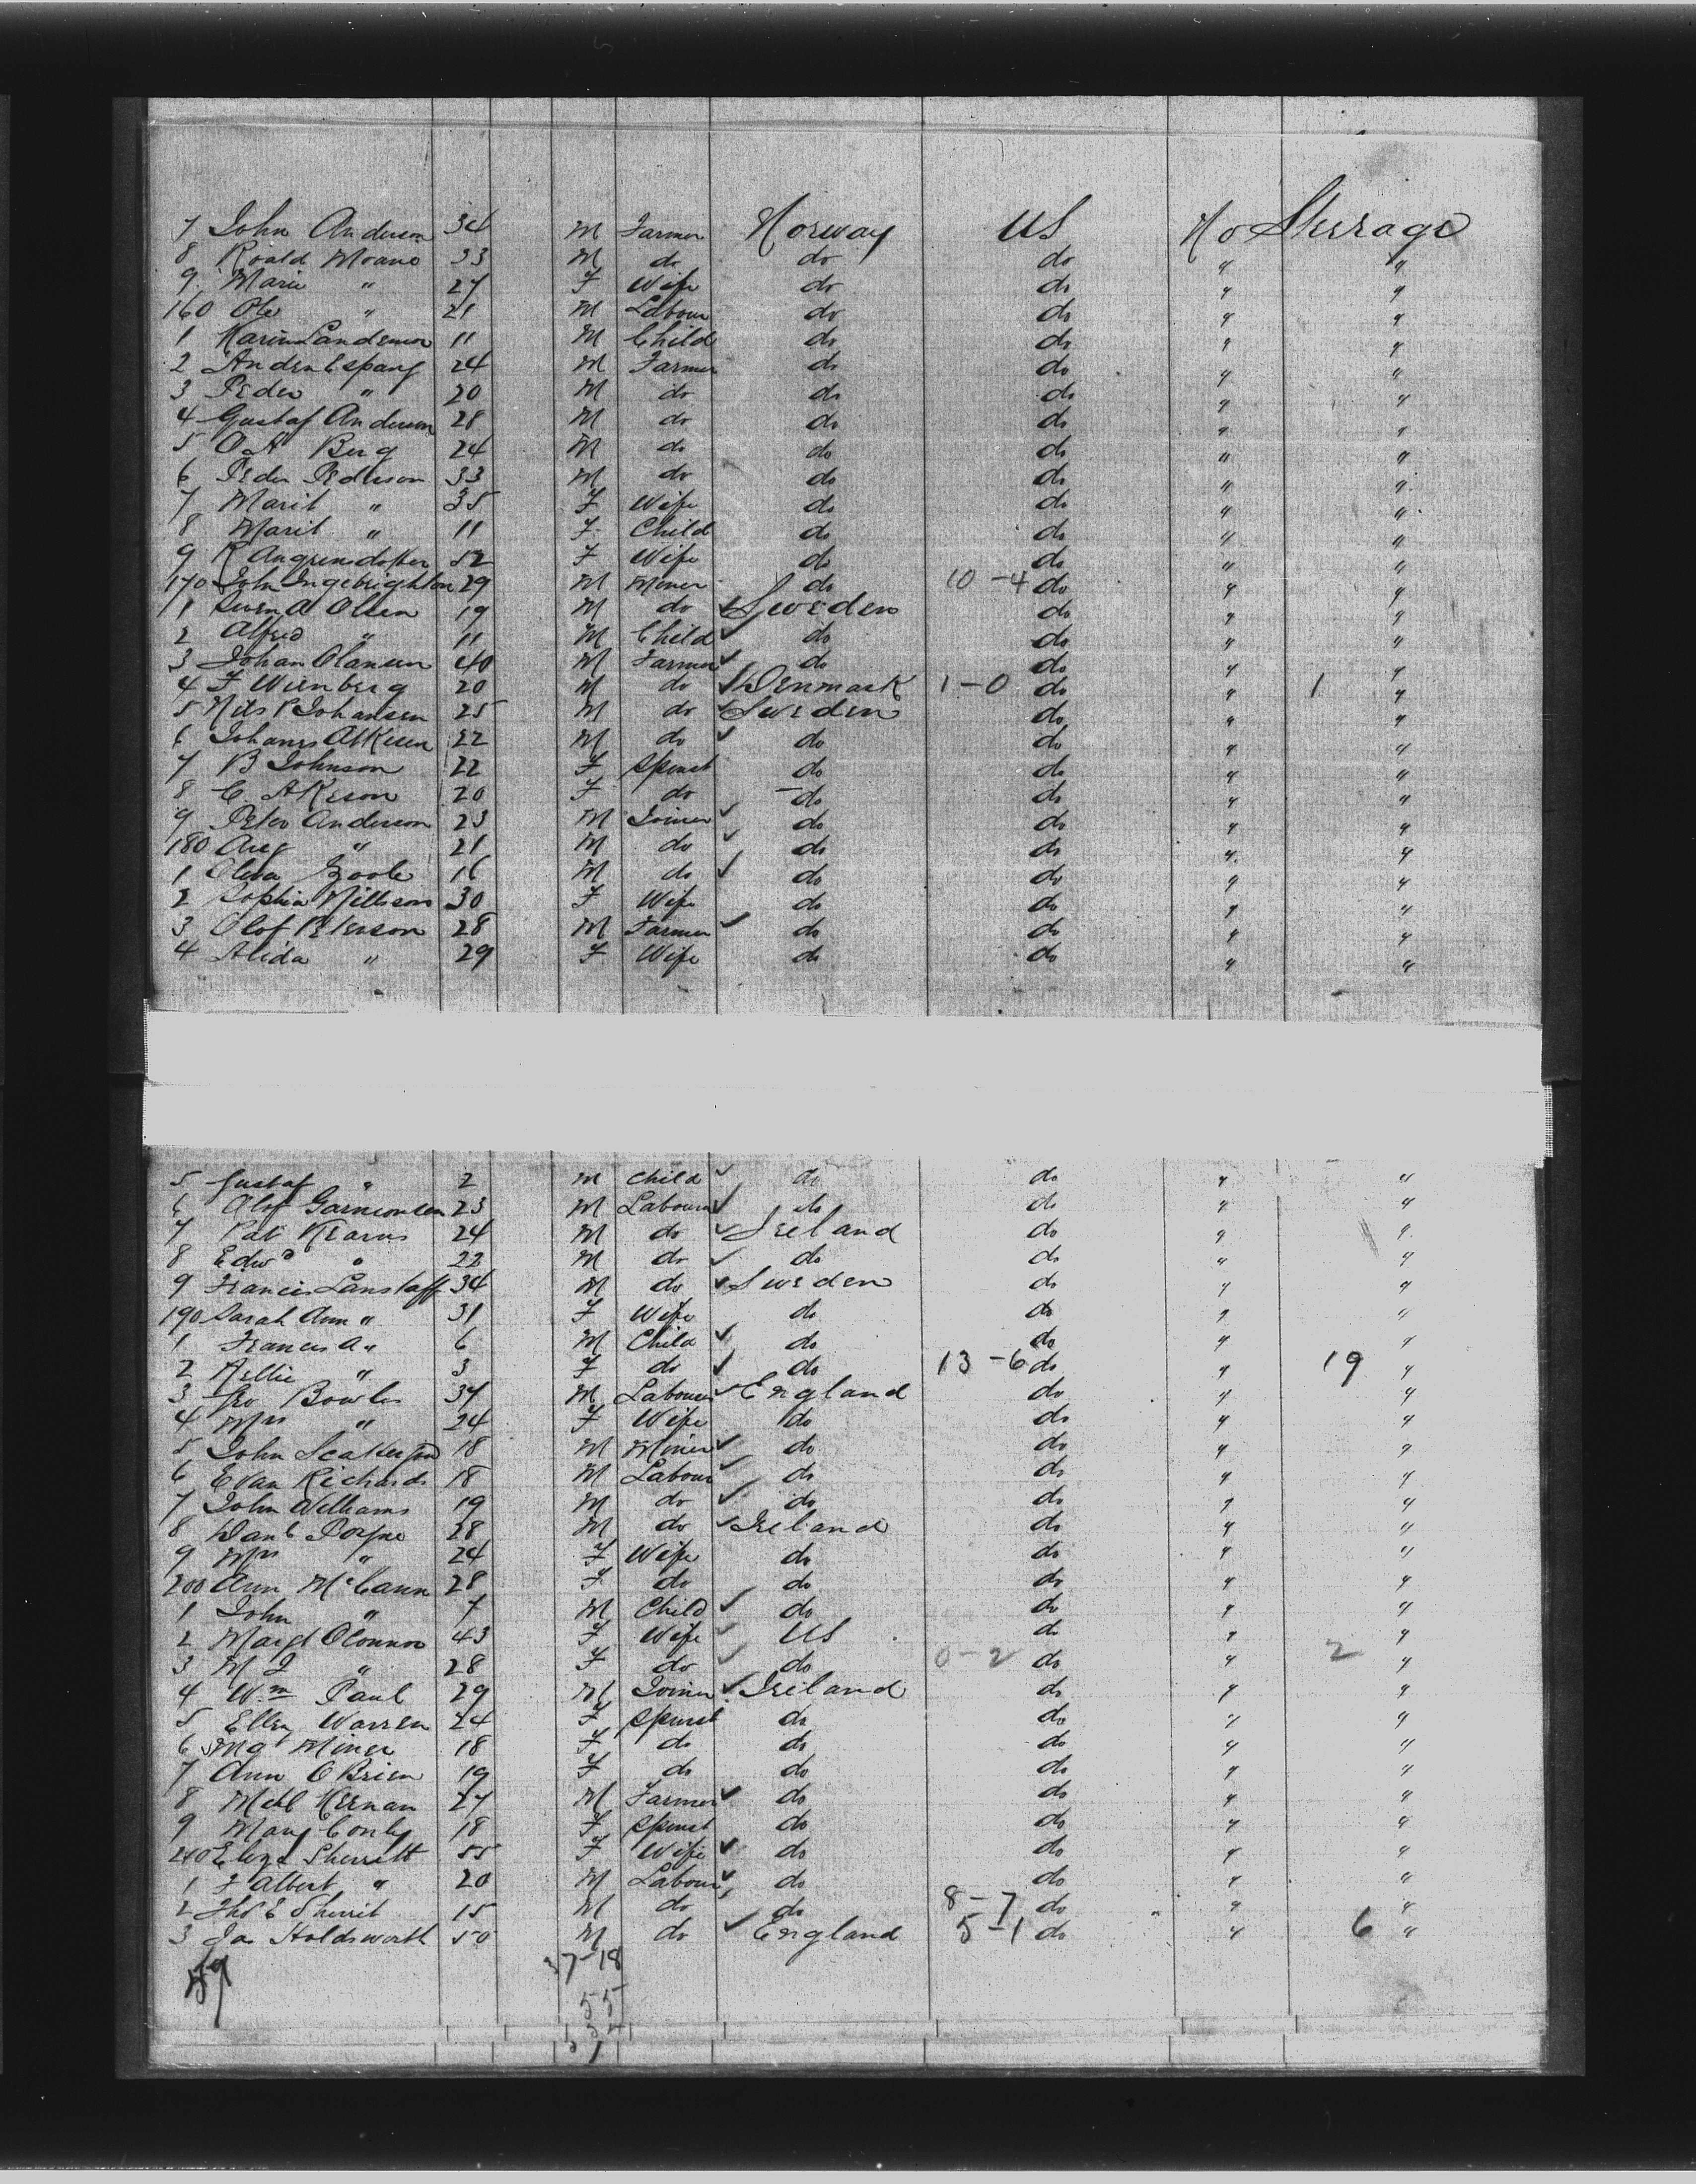 7 John Anderson 34 M Farmer Norway US No Sterrage
8 Roald Moano 33 M do do do " "
9 Marie " 27 F Wife do do " "
160 Ole " 21 M Labour do do " "
1 Landemor 11 M Child do do " "
2 Anders Espang 24 M Farmer do do " "
3 Peder " 20 M do do do " "
4 Gustaf Anderson 28 M do do do " "
5 O A Berg 24 M do do do " "
6 Peder Pederson 33 M do do do " "
7 Marit " 35 F Wife do do " "
8 Marit " 11 F Child do do " "
9 R 52 F Wife do do " "
170 John Ingebrighton 29 M Miner do 10-4 do " "
1 Sven A Olsen 19 M do Sweden do " "
2 Alfred " 11 M Child do do " "
3 Johan Olansen 40 M Farmer do do " "
4 F Wienberg 20 M do Denmark 1-0 do " 1 "
5 Nils P Johansen 25 M do Sweden do " "
6 Johanes Akesen 22 M do do do " "
7 B Johnson 22 F Spinst do do " "
8 C Akeson 20 F do do do " "
9 Peter Anderson 23 M Joiner do do " "
180 Aug " 21 M do do do " "
1 16 M do do do " "
2 Sophia Nillson 30 F Wife do do " "
3 Olof Peterson 28 M Farmer do do " "
4 Alida " 29 F Wife do do " "
5 Gustaf " 2 M Child do do " "
6 Olof 23 M Labourer do do " "
7 Pat Kearns 24 M do Ireland do " "
8 Edwd " 22 M do do do " "
9 Francis Lanstaff 34 M do Sweden do " "
190 Sarah Ann " 31 F Wife do do " "
1 Francis A " 6 M Child do do " "
2 Nellie " 3 F do do 13-6 do " 19 "
3 Geo Bowles 37 M Labourer England do " "
4 Mrs " 24 F Wife do do " "
5 John 18 M Miner do do " "
6 Evan Richards 18 M Labour do do " "
7 John Williams 19 M do do do " "
8 Danl 28 M do Ireland do " "
9 Mrs " 24 F Wife do do " "
200 Ann McCann 28 F do do do " "
1 John " 7 M Child do do " "
2 Margt OConnor 43 F Wife US do " "
3 M J " 28 F do do 0-2 do " 2 "
4 Wm Paul 29 M Joiner Ireland do " "
5 Ellen Warren 24 F Spinst do do " "
6 Mgt Miner 18 F do do do " "
7 Ann OBrien 19 F do do do " "
8 Mchl Kernan 27 M Farmer do do " "
9 Mary Conly 18 F Spinst do do " "
210 Eliza Sherritt 55 F Wife do do " "
1 F Albert " 20 M Labour do do " "
2 Thos E Sherrit 15 M do do 8-7 do " "
3 Jas Holdsworth 50 M do England 5-1 do " 6 "
37-18
55